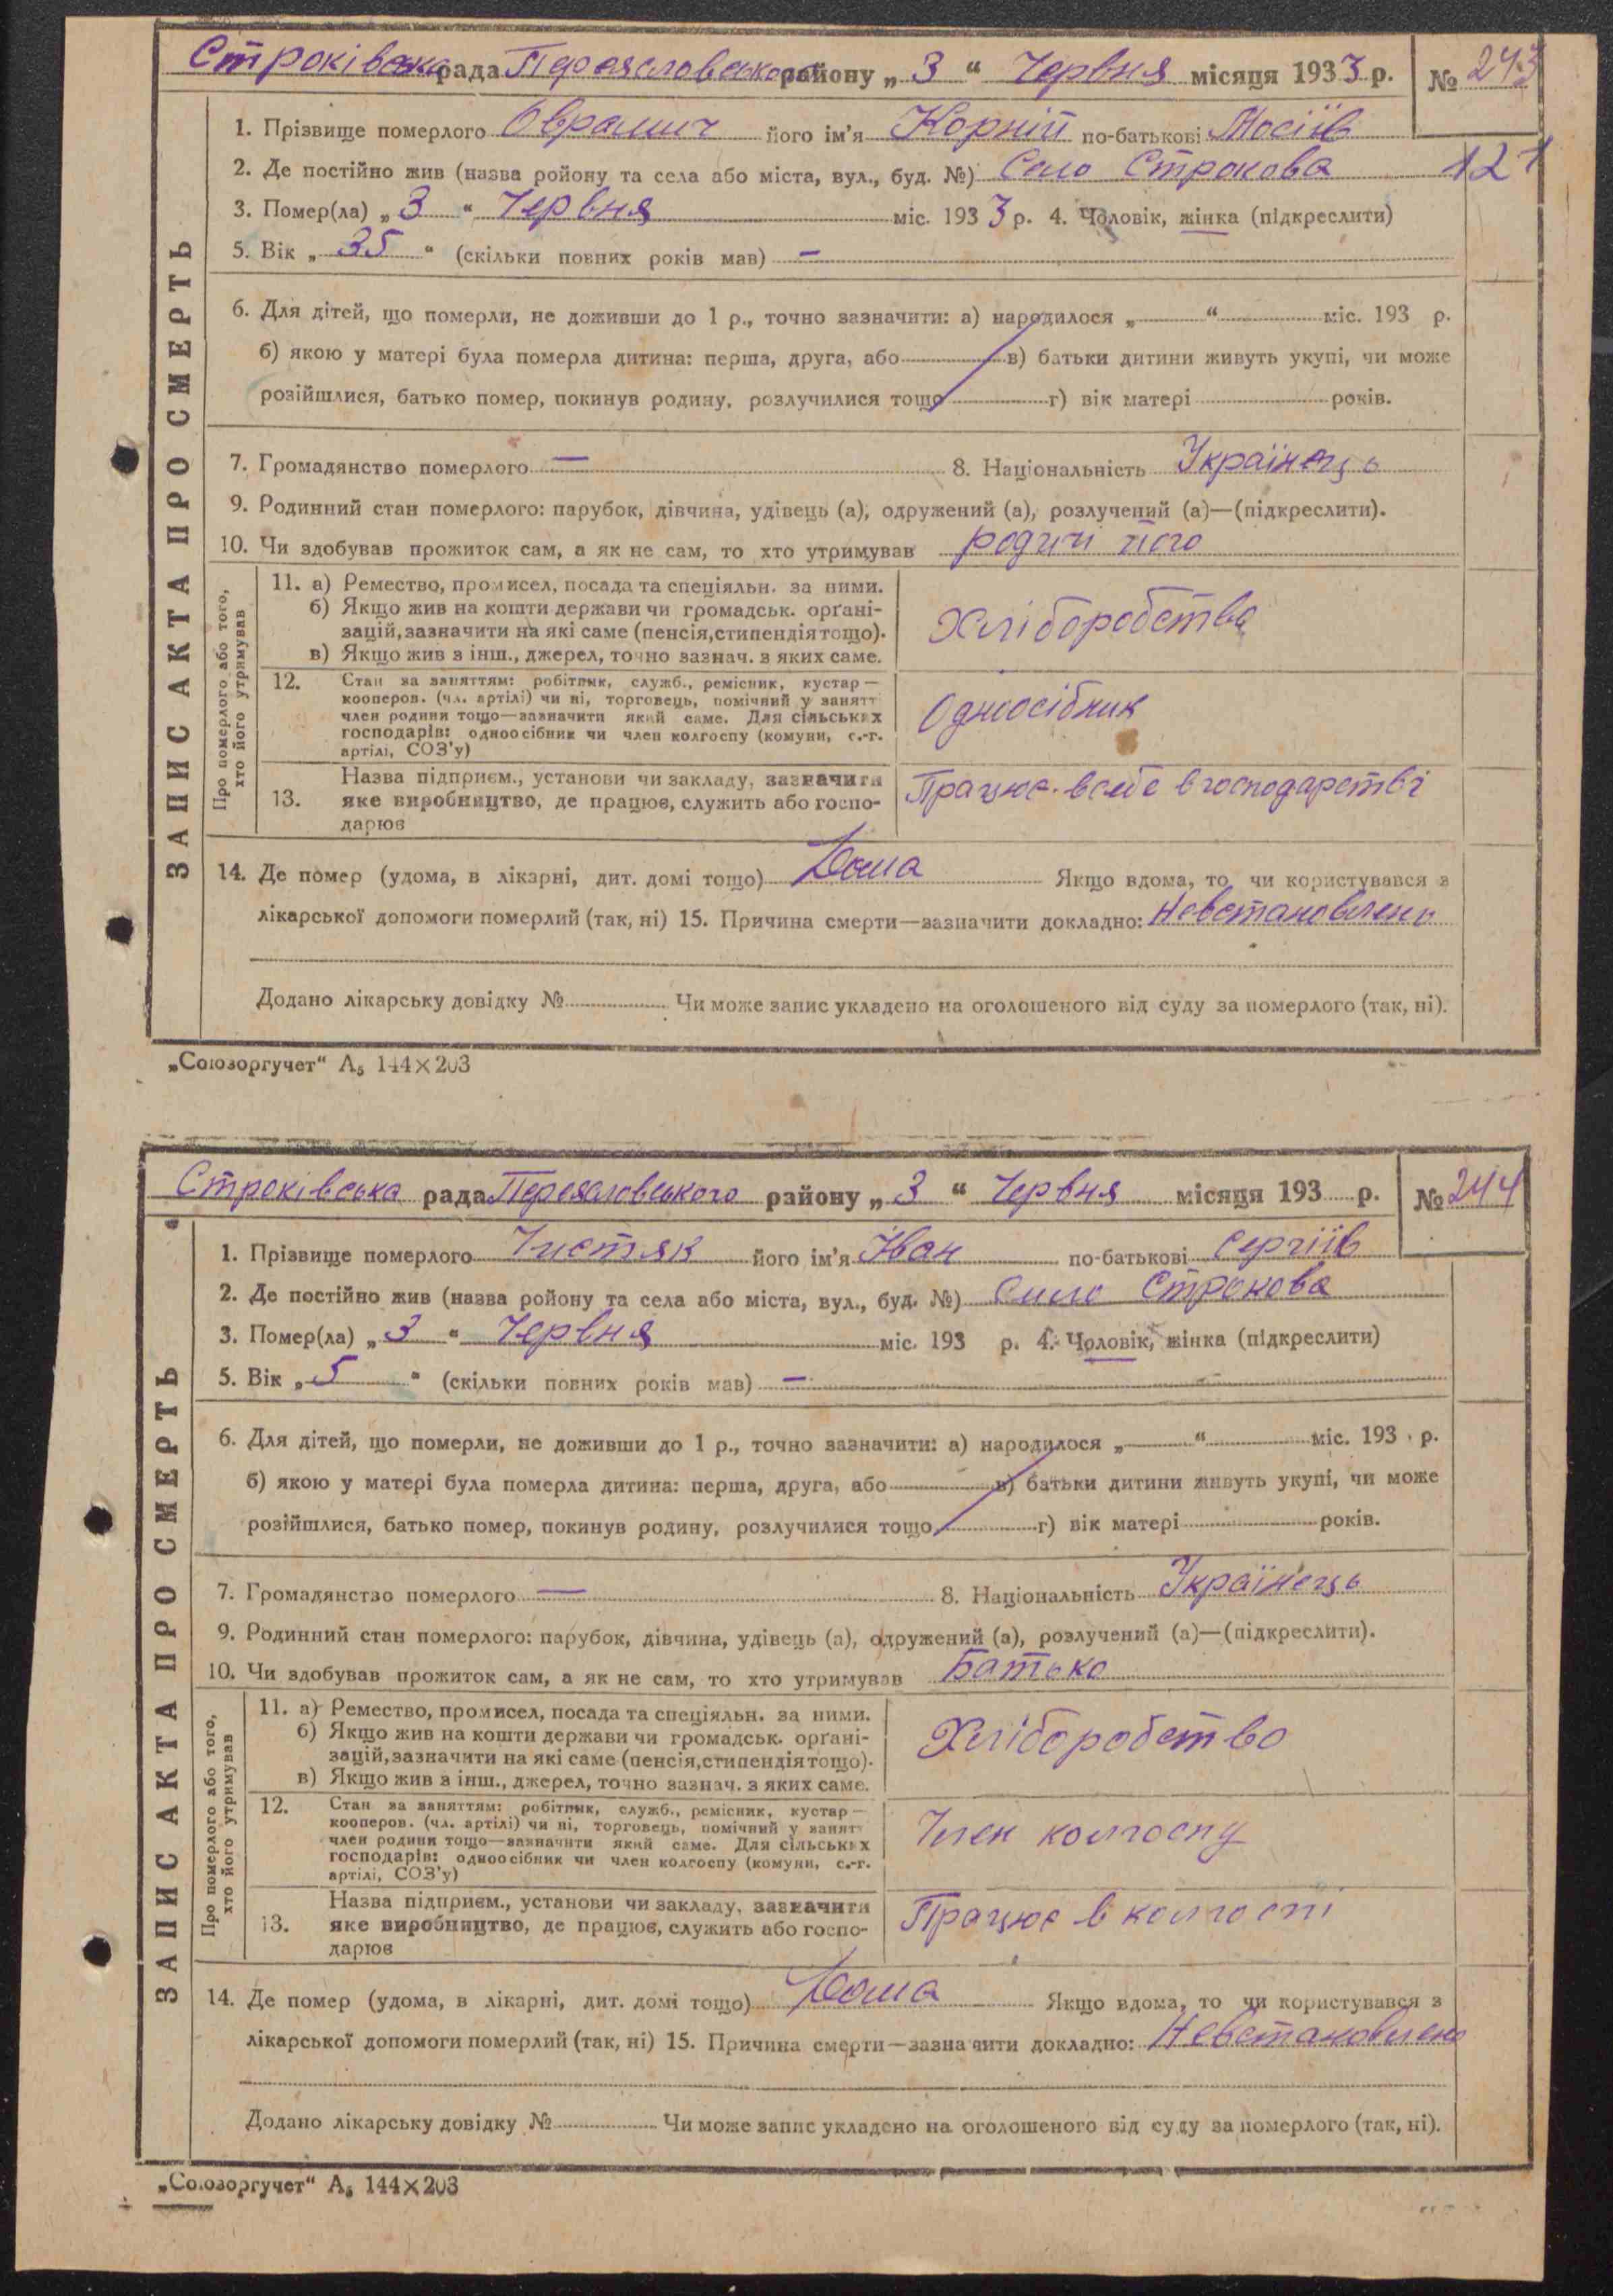 Строківська рада Переяславського району „ 3 “ Червня місяця 1933 р. № 243
1. Прізвище померлого Аврамич його ім'я Корній по-батькові Мосіїв
2. Де постійно жив (назва ройону та села або міста, вул., буд. №) Село Строкова 121
3. Помер(ла) „ 3 “ Червня міс. 1933 р. 4. Чоловік, жінка (підкреслити)
5. Вік „ 35 “ (скільки повних років мав) —
6. Для дітей, що померли, не доживши до 1 р., точно зазначити: а) народилося „ “ міс. 193 р.
б) якою у матері була померла дитина: перша, друга, або в) батьки дитини живуть укупі, чи може
розійшлися, батько помер, покинув родину, розлучилися тощо г) вік матері років.
7. Громадянство померлого — 8. Національність Українець
9. Родинний стан померлого: парубок, дівчина, удівець (а), одружений (а), розлучений (а)—(підкреслити).
10. Чи здобував прожиток сам, а як не сам, то хто утримував родичі його
ЗАПИС АКТА ПРО СМЕРТЬ
Про померлого або того,
хто його утримував
11. а) Ремество, промисел, посада та спеціяльн. за ними.
б) Якщо жив на кошти держави чи громадськ. орґані-
зацій, зазначити на які саме (пенсія, стипендія тощо).
в) Якщо жив з інш., джерел, точно зазнач. з яких саме.
Хліборобства
12. Стан за заняттям: робітник, служб., ремісник, кустар—
кооперов. (чл. артілі) чи ні, торговець, помічний у занятт
член родини тощо—зазначити який саме. Для сільських
господарів: одноосібник чи член колгоспу (комуни, с.-г.
артілі, СОЗ'у)
Одноосібник
13. Назва підприєм., установи чи закладу, зазначити
яке виробництво, де працює, служить або госпо-
дарює
Працює в себе в господарстві
14. Де помер (удома, в лікарні, дит. домі тощо) Дома Якщо вдома, то чи користувався з
лікарської допомоги померлий (так, ні) 15. Причина смерти—зазначити докладно: Невстановлено
Додано лікарську довідку № Чи може запис укладено на оголошеного від суду за померлого (так, ні).
„Союзоргучет“ А5 144×203
Строківська рада Переяславського району „ 3 “ Червня місяця 193 р. № 244
1. Прізвище померлого Чистяк його ім'я Іван по-батькові Сергіїв
2. Де постійно жив (назва ройону та села або міста, вул., буд. №) Село Строкова
3. Помер(ла) „ 3 “ Червня міс. 193 р. 4. Чоловік, жінка (підкреслити)
5. Вік „ 5 “ (скільки повних років мав) —
6. Для дітей, що померли, не доживши до 1 р., точно зазначити: а) народилося „ “ міс. 193 р.
б) якою у матері була померла дитина: перша, друга, або в) батьки дитини живуть укупі, чи може
розійшлися, батько помер, покинув родину, розлучилися тощо г) вік матері років.
7. Громадянство померлого — 8. Національність Українець
9. Родинний стан померлого: парубок, дівчина, удівець (а), одружений (а), розлучений (а)—(підкреслити).
10. Чи здобував прожиток сам, а як не сам, то хто утримував Батько
ЗАПИС АКТА ПРО СМЕРТЬ
Про померлого або того,
хто його утримував
11. а) Ремество, промисел, посада та спеціяльн. за ними.
б) Якщо жив на кошти держави чи громадськ. орґані-
зацій, зазначити на які саме (пенсія, стипендія тощо).
в) Якщо жив з інш., джерел, точно зазнач. з яких саме.
Хліборобство
12. Стан за заняттям: робітник, служб., ремісник, кустар—
кооперов. (чл. артілі) чи ні, торговець, помічний у занятт
член родини тощо—зазначити який саме. Для сільських
господарів: одноосібник чи член колгоспу (комуни, с.-г.
артілі, СОЗ'у)
Член колгоспу
13. Назва підприєм., установи чи закладу, зазначити
яке виробництво, де працює, служить або госпо-
дарює
Працює в колгоспі
14. Де помер (удома, в лікарні, дит. домі тощо) Дома Якщо вдома, то чи користувався з
лікарської допомоги померлий (так, ні) 15. Причина смерти—зазначити докладно: Невстановлено
Додано лікарську довідку № Чи може запис укладено на оголошеного від суду за померлого (так, ні).
„Союзоргучет“ А5 144×203